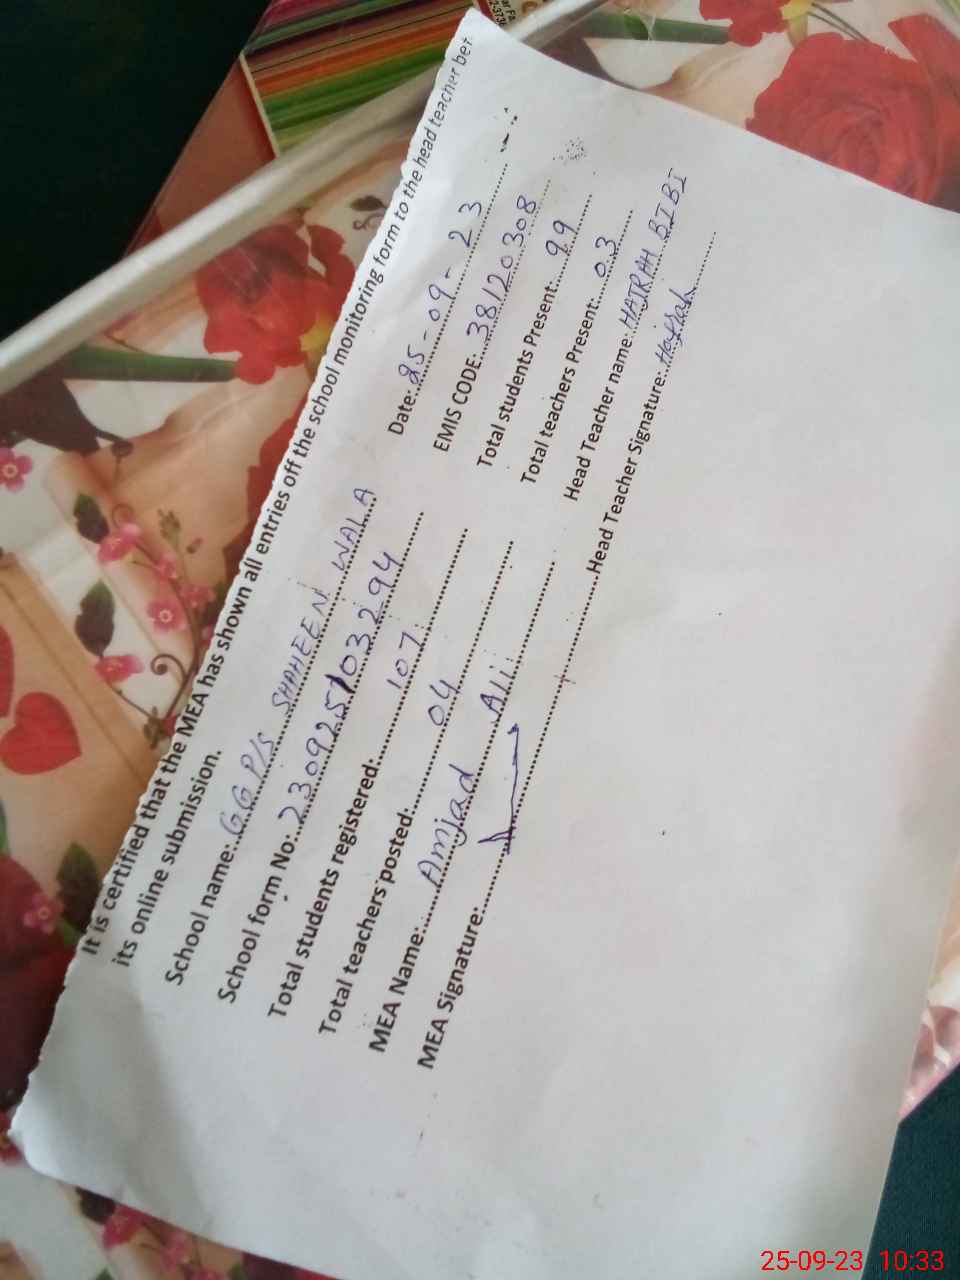 It is certified that the MEA has shown all entries off the school monitoring form to the head teacher bef
its online submission.
School name: GGP/S SHAHEEN WALA Date: 25-09-23
School form No: 230925103294 EMIS CODE: 38120308
Total students registered: 107 Total students Present: 99
Total teachers posted: 04 Total teachers Present: 03
MEA Name: Amjad Ali Head Teacher name: HAJRAH BIBI
MEA Signature: Head Teacher Signature: Hajrah
25-09-23 10:33